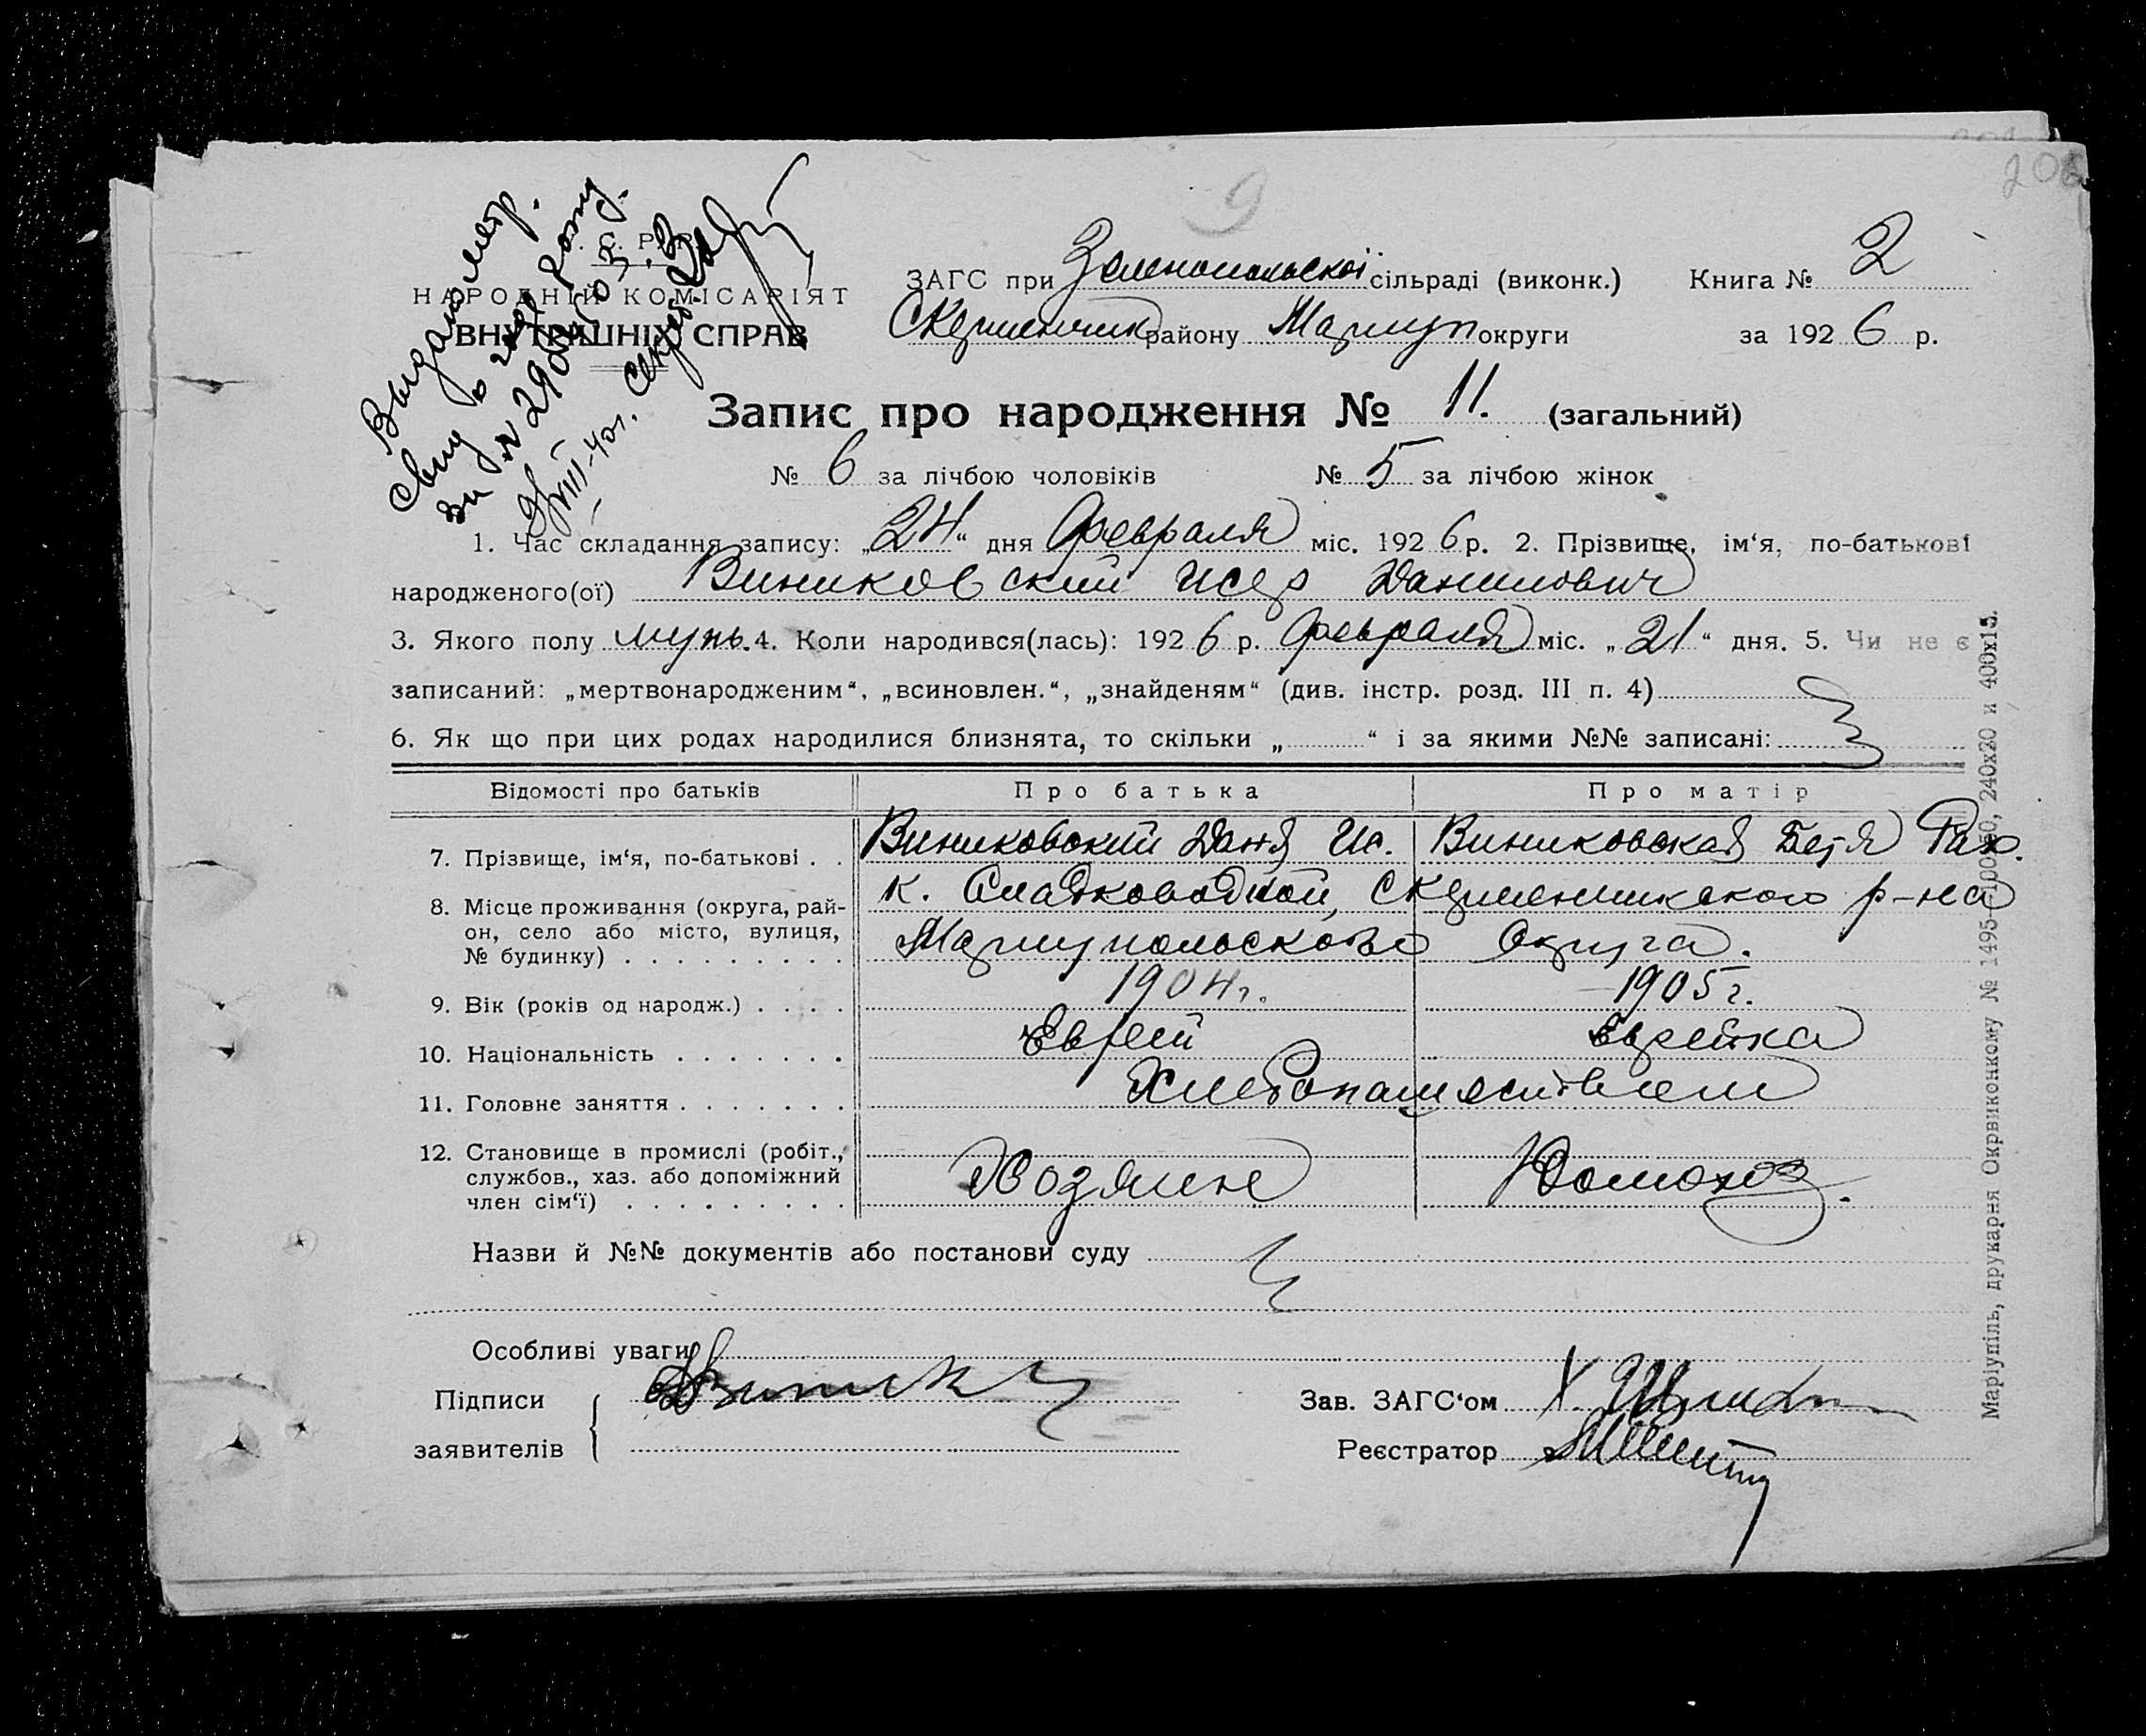 9
206
У. С. Р. Р.
НАРОДНІЙ КОМІСАРІЯТ
ВНУТРІШНІХ СПРАВ
ЗАГС при Зеленопольской сільраді (виконк.) Книга № 2
району Мариуп округи за 1926 р.
Запис про народження № 11. (загальний)
№ 6 за лічбою чоловіків № 5 за лічбою жінок
1. Час складання запису: „24“ дня Февраля міс. 1926 р. 2. Прізвище, ім‘я, по-батькові
народженого(ої) Виниковский Исер Данилович
3. Якого полу мужь. 4. Коли народився(лась): 1926 р. Февраля міс. „21“ дня. 5. Чи не є
записаний: „мертвонародженим“, „всиновлен.“, „знайденям“ (див. інстр. розд. III п. 4)
6. Як що при цих родах народилися близнята, то скільки „ “ і за якими №№ записані:
Відомості про батьків Про батька Про матір
7. Прізвище, ім‘я, по-батькові . . Виниковский Даня Ис. Виниковская Бетя Рах.
8. Місце проживання (округа, рай-
он, село або місто, вулиця,
№ будинку) . . . . . . . . .
к. Сладководной, р-на
Мариупольского Округа.
9. Вік (років од народж.) . . . . 1904 г. 1905 г.
10. Національність . . . . . . . Еврей Еврейка
11. Головне заняття . . . . . . . Хлебопашеством
12. Становище в промислі (робіт.,
службов., хаз. або допоміжний
член сім‘ї) . . . . . . . . .
Хозяин Домохоз.
Назви й №№ документів або постанови суду
Особливі уваги
Підписи
заявителів
Зав. ЗАГС‘ом
Реєстратор
Маріупіль, друкарня Окрвиконкому № 1495—10050, 240х20 и 400х15.